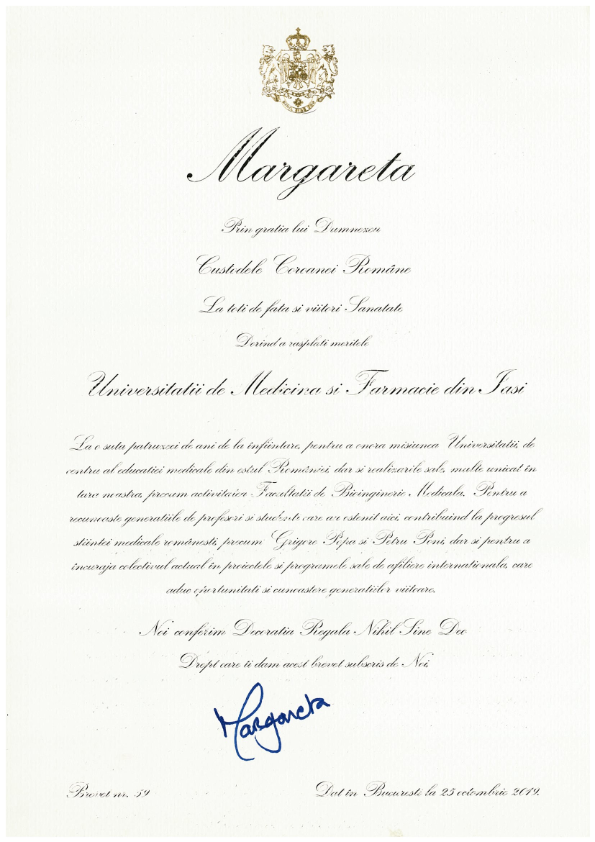 Margareta
Prin gratia lui Dumnezeu
Custodele Coroanei Române
La toti de fata si viitori Sanatate
Dorind a rasplati meritele
Universitatii de Medicina si Farmacie din Iasi
La o suta patruzeci de ani de la înfiintare, pentru a onora misiunea Universitatii, de
centru al educatiei medicale din estul României, dar si realizarile sale, multe unicat în
tara noastra, precum activitatea Facultatii de Bioinginerie Medicala. Pentru a
recunoaste generatiile de profesori si studenti care au ostenit aici, contribuind la progresul
stiintei medicale românesti, precum Grigore Popa si Petru Poni, dar si pentru a
încuraja colectivul actual în proiectele si programele sale de afiliere internationala, care
aduc oportunitati si cunoastere generatiilor viitoare.
Noi conferim Decoratia Regala Nihil Sine Deo
Drept care ti dam acest brevet subscris de Noi.
Margareta
Brevet nr. 59
Dat în Bucuresti la 25 octombrie 2019.